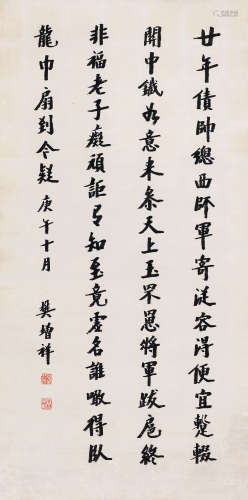 廿年債帥總西師軍寄從容得便宜蹔輟
關中鐵如意来參天上玉罘罳將軍跋扈終
非福老子癡頑詎有知至竟虛名誰噉得臥
龍巾扇到今疑 庚午十月 樊增祥